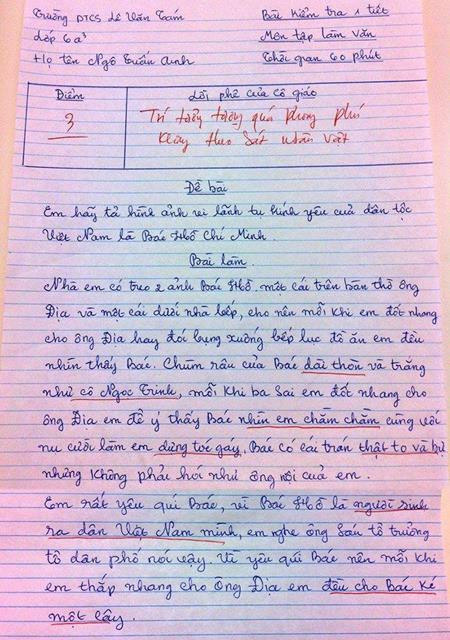 Trường PTCS Lê Văn Tám
Bài kiểm tra 1 tiết
Lớp 6a³
Môn tập làm văn
Họ tên Ngô Tuấn Anh
Thời gian 60 phút
Điểm
Lời phê của cô giáo
3
Trí tưởng tượng quá phong phú
không theo sát nhân vật
Đề bài
Em hãy tả hình ảnh vị lãnh tụ kính yêu của dân tộc
Việt Nam là Bác Hồ Chí Minh.
Bài làm.
Nhà em có treo 2 ảnh Bác Hồ. một cái trên bàn thờ ông
Địa và một cái dưới nhà bếp, cho nên mỗi khi em đốt nhang
cho ông Địa hay đói bụng xuống bếp lục đồ ăn em đều
nhìn thấy Bác. Chùm râu của Bác dài thòn và trắng
như cô Ngọc Trinh, mỗi khi ba sai em đốt nhang cho
ông Địa em để ý thấy Bác nhìn em chằm chằm cùng với
nụ cười làm em dựng tóc gáy. Bác có cái trán thật to và bự
nhưng không phải hói như ông nội của em.
Em rất yêu quí Bác, vì Bác Hồ là người sinh
ra dân Việt Nam mình, em nghe ông Sáu tổ trưởng
tổ dân phố nói vậy. Vì yêu quí Bác nên mỗi khi
em thắp nhang cho Ông Địa em đều cho Bác ké
một cây.